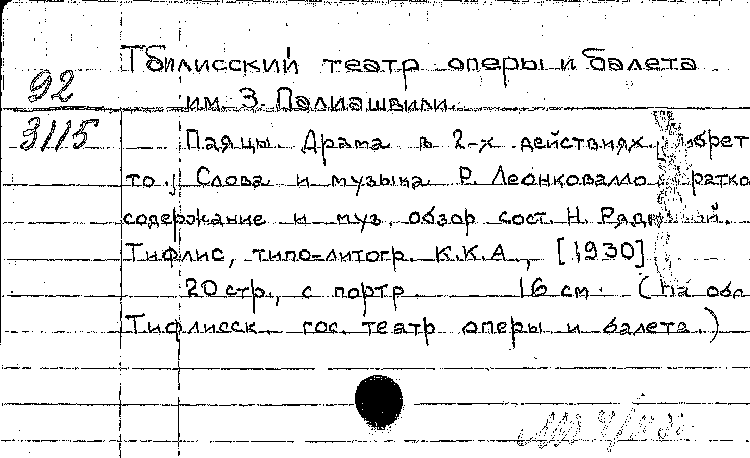 Тбилисский театр оперы и балета
92
им. З. Палиашвили.
3115
Паяцы. Драма в 2-х действиях.
то.) Слова и музыка Р. Леонковалло
содержание и муз. обзор сост. Н.
Тифлис, типо-литогр. К.К.А., [1930]
20 стр., с портр. 16 см. (На обл.
Тифлисск. гос. театр оперы и балета.)